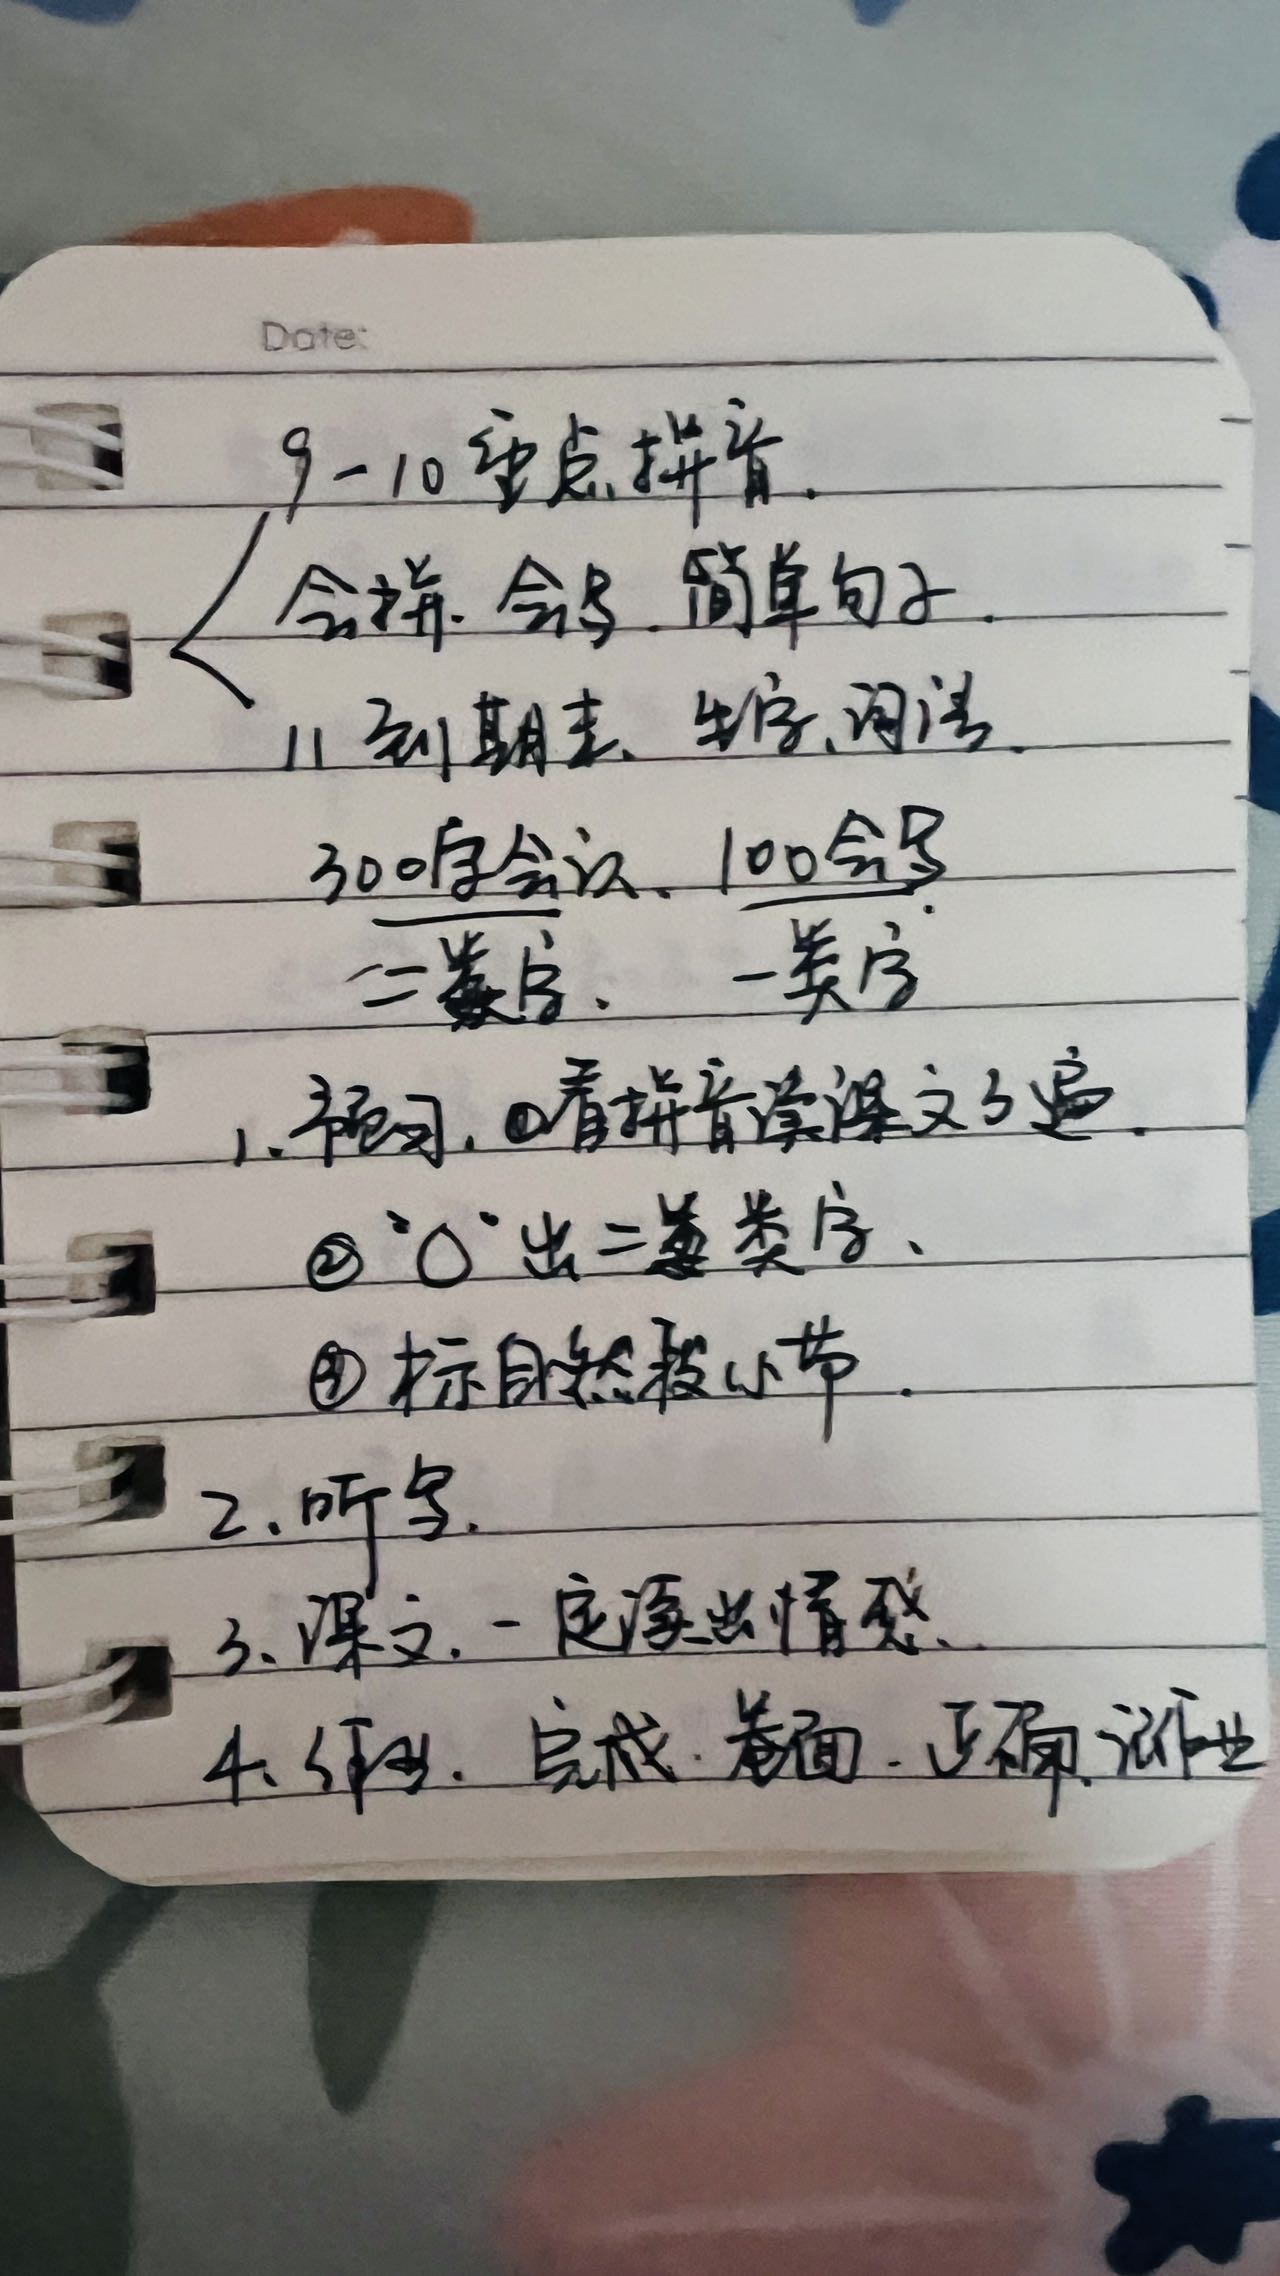 Date:
9-10重点拼音.
会拼.会写.简单句子.
11到期末、生字、词语.
300字会认、100会写.
二类字、 一类字
1、预习.①看拼音读课文3遍.
②"○"出二类字、
③标自然段小节.
2、听写.
3、课文.一定读出情感、
4、作业.完成.卷面.正确、记作业